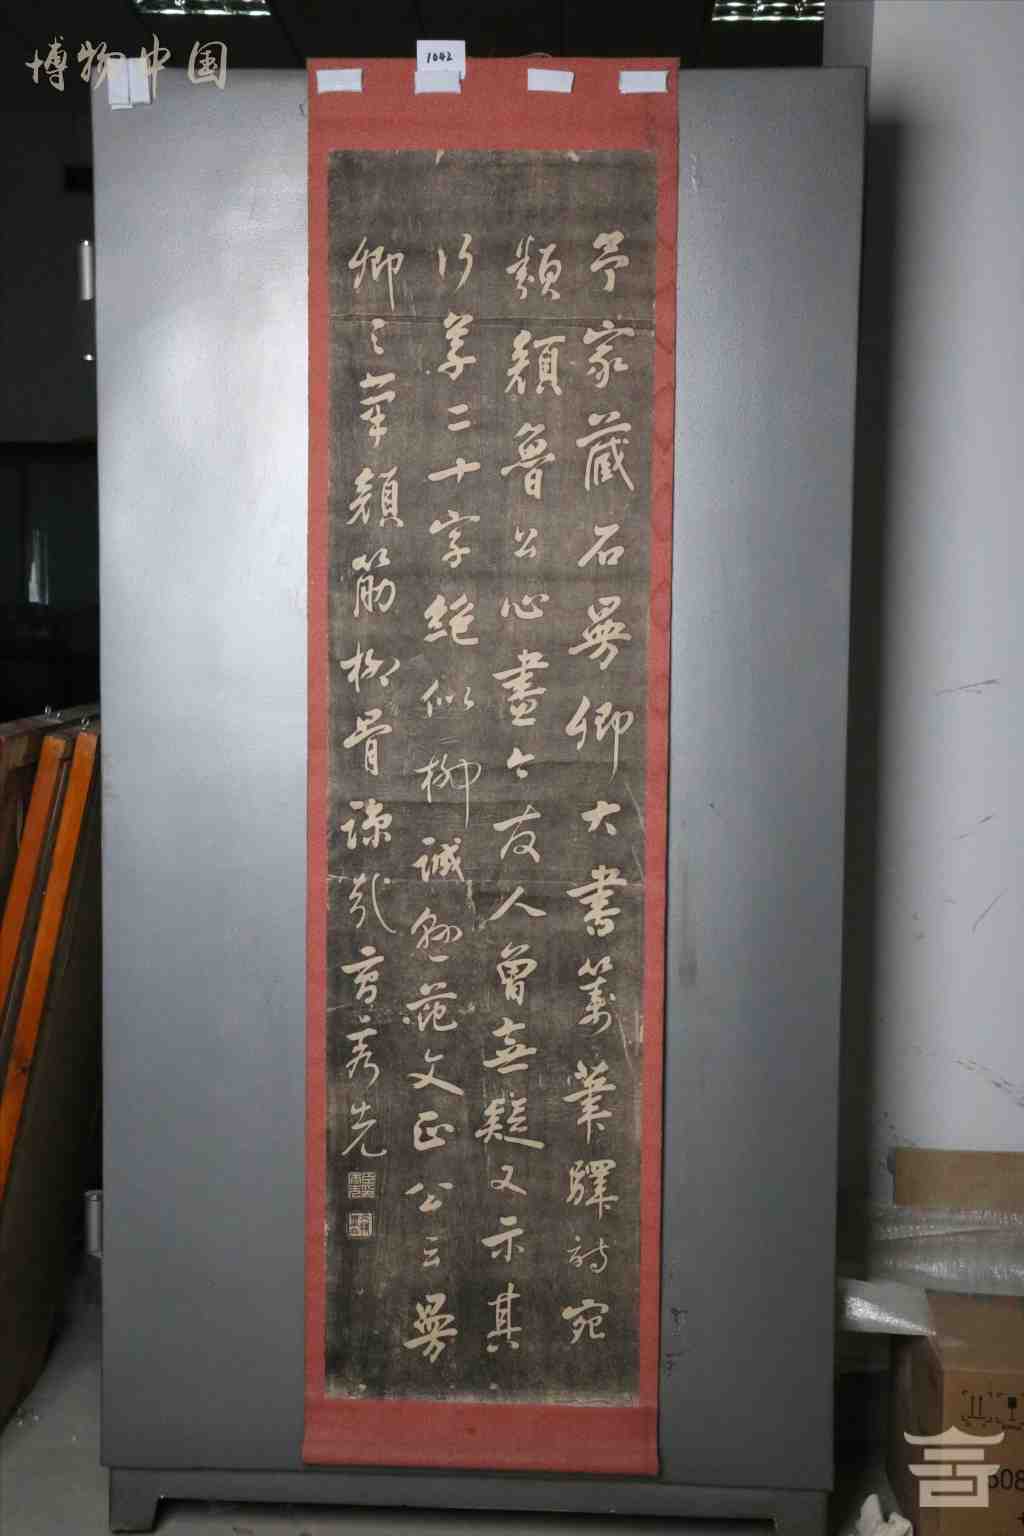 博物中国
1042
予家藏石曼卿大書籌筆驛詩宛
類顏魯公心畫今友人曾無疑又示其
行草二十字絕似柳誠懸范文正公云曼
卿之筆顏筋柳骨諒哉 秀先